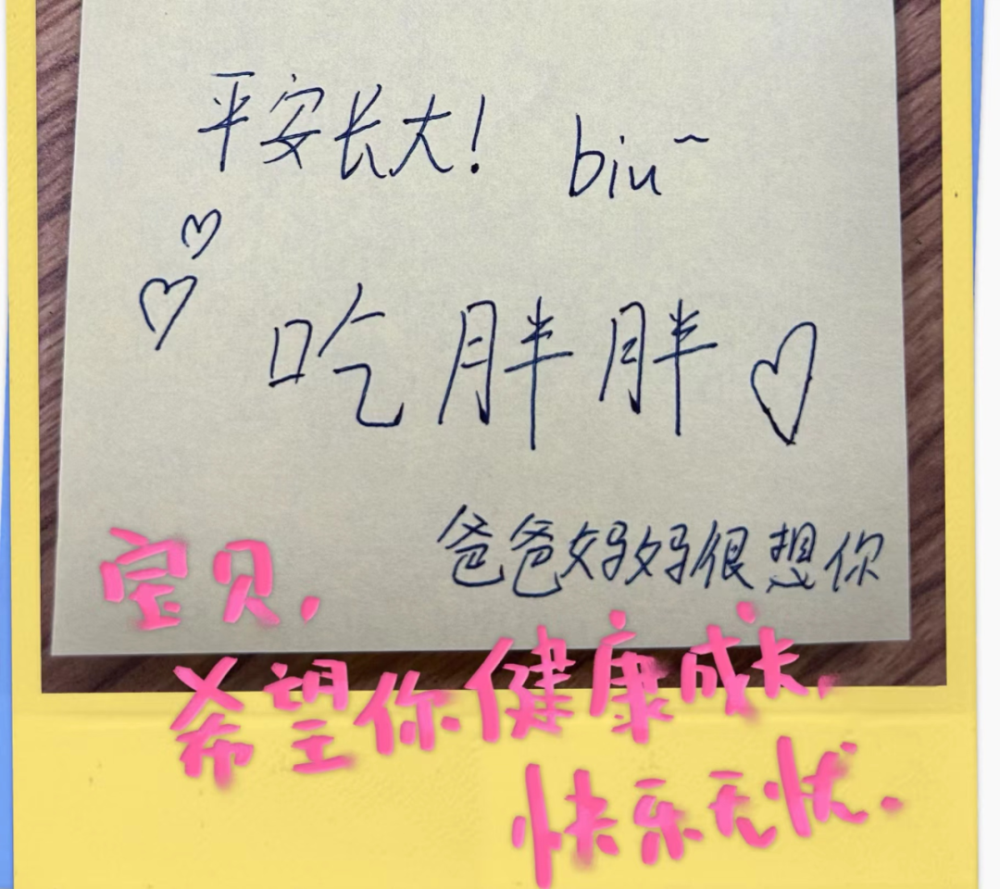 平安长大! biu~
吃胖胖
爸爸妈妈很想你
宝贝,
希望你健康成长,
快乐无忧.